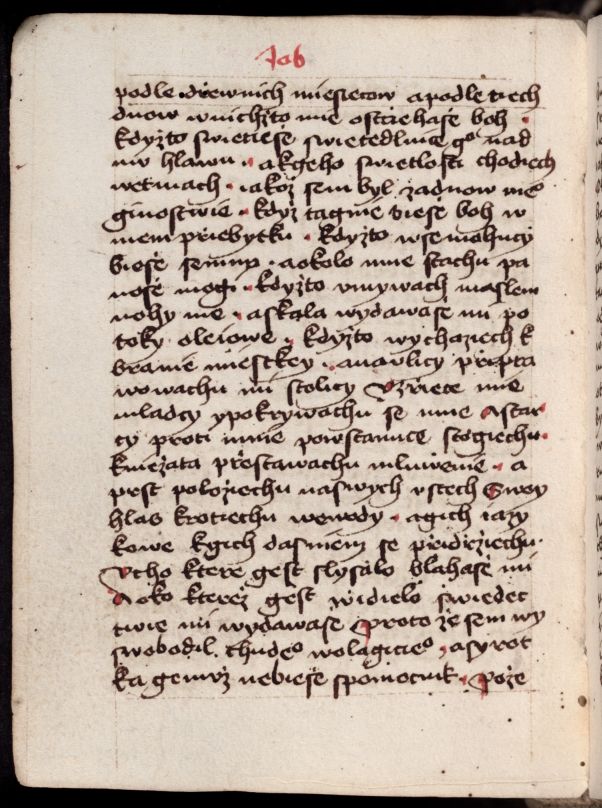 Job
podle drewnich miesiecow a podle tiech
dnow w nichżto mie ostrziehase boh ·
kdyżto swietiese swietedlnie gᵒ nad
mu hlawu · a kgeho swietlosti chodiech
wetmach · iakoż sem byl za dnow meᵒ
ginostwie · kdyż tagmie biese boh w
mem przie­bytku · kdyżto wsemohucy
biese semnu · a okolo mne stachu pa
nose mogi · kdyżto umywach maslem
nohy me · a skala wydawase mi po
toky oleiowe · kdyżto wychaziech k
branie miestkey · a na ulicy przipra
wowachu mi stolicy Uzrziece mie
mladcy ypokrywachu se mne A star
cy proti mnie powstanuce stogiechu ·
kniezata przestawachu mluwenie · a
prst poloziechu na swych ustech Swoy
hlas krotiechu wewody · a gich iazy
kowe k gich dasniem se przidrziechu ·
Ucho ktere gest slysalo blahase mi
A oko ktereż gest widielo swiedec
twie mi wydawase Proto że sem wy
swobodil chudeᵒ wolagicieᵒ · a syrot
ka gemuż nebiese spomocnik · Poże